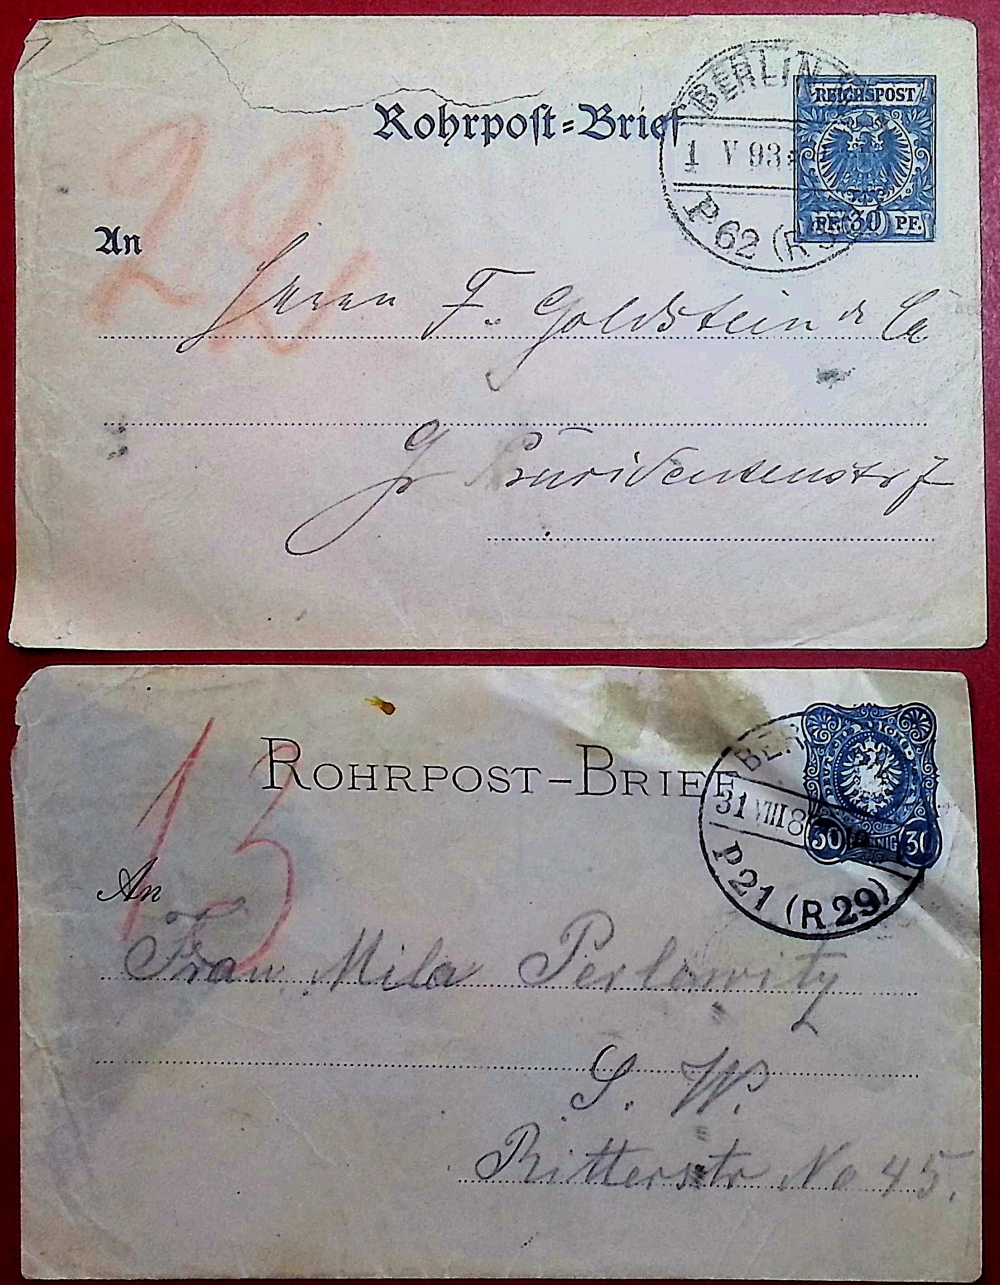 22
Rohrpost-Brief
BERLIN
1 V 93
P 62 (R
REICHSPOST
PF. 30 PF.
An
Herrn F. Goldstein & Co
gr
13
ROHRPOST-BRIEF
BER
31 VIII 8
P 21 (R 29)
30 30
An
Frau Mila Perlowitz
S. W.
Ritterstr No 45.